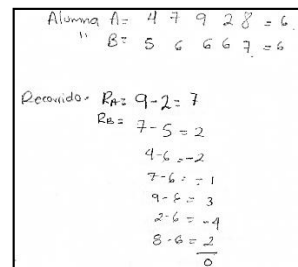 Alumna A= 4 7 9 2 8 = 6
" B= 5 6 6 6 7 = 6
Recorrido= RA= 9-2=7
RB= 7-5=2
4-6=-2
7-6= 1
9-6= 3
2-6=-4
8-6=2
0